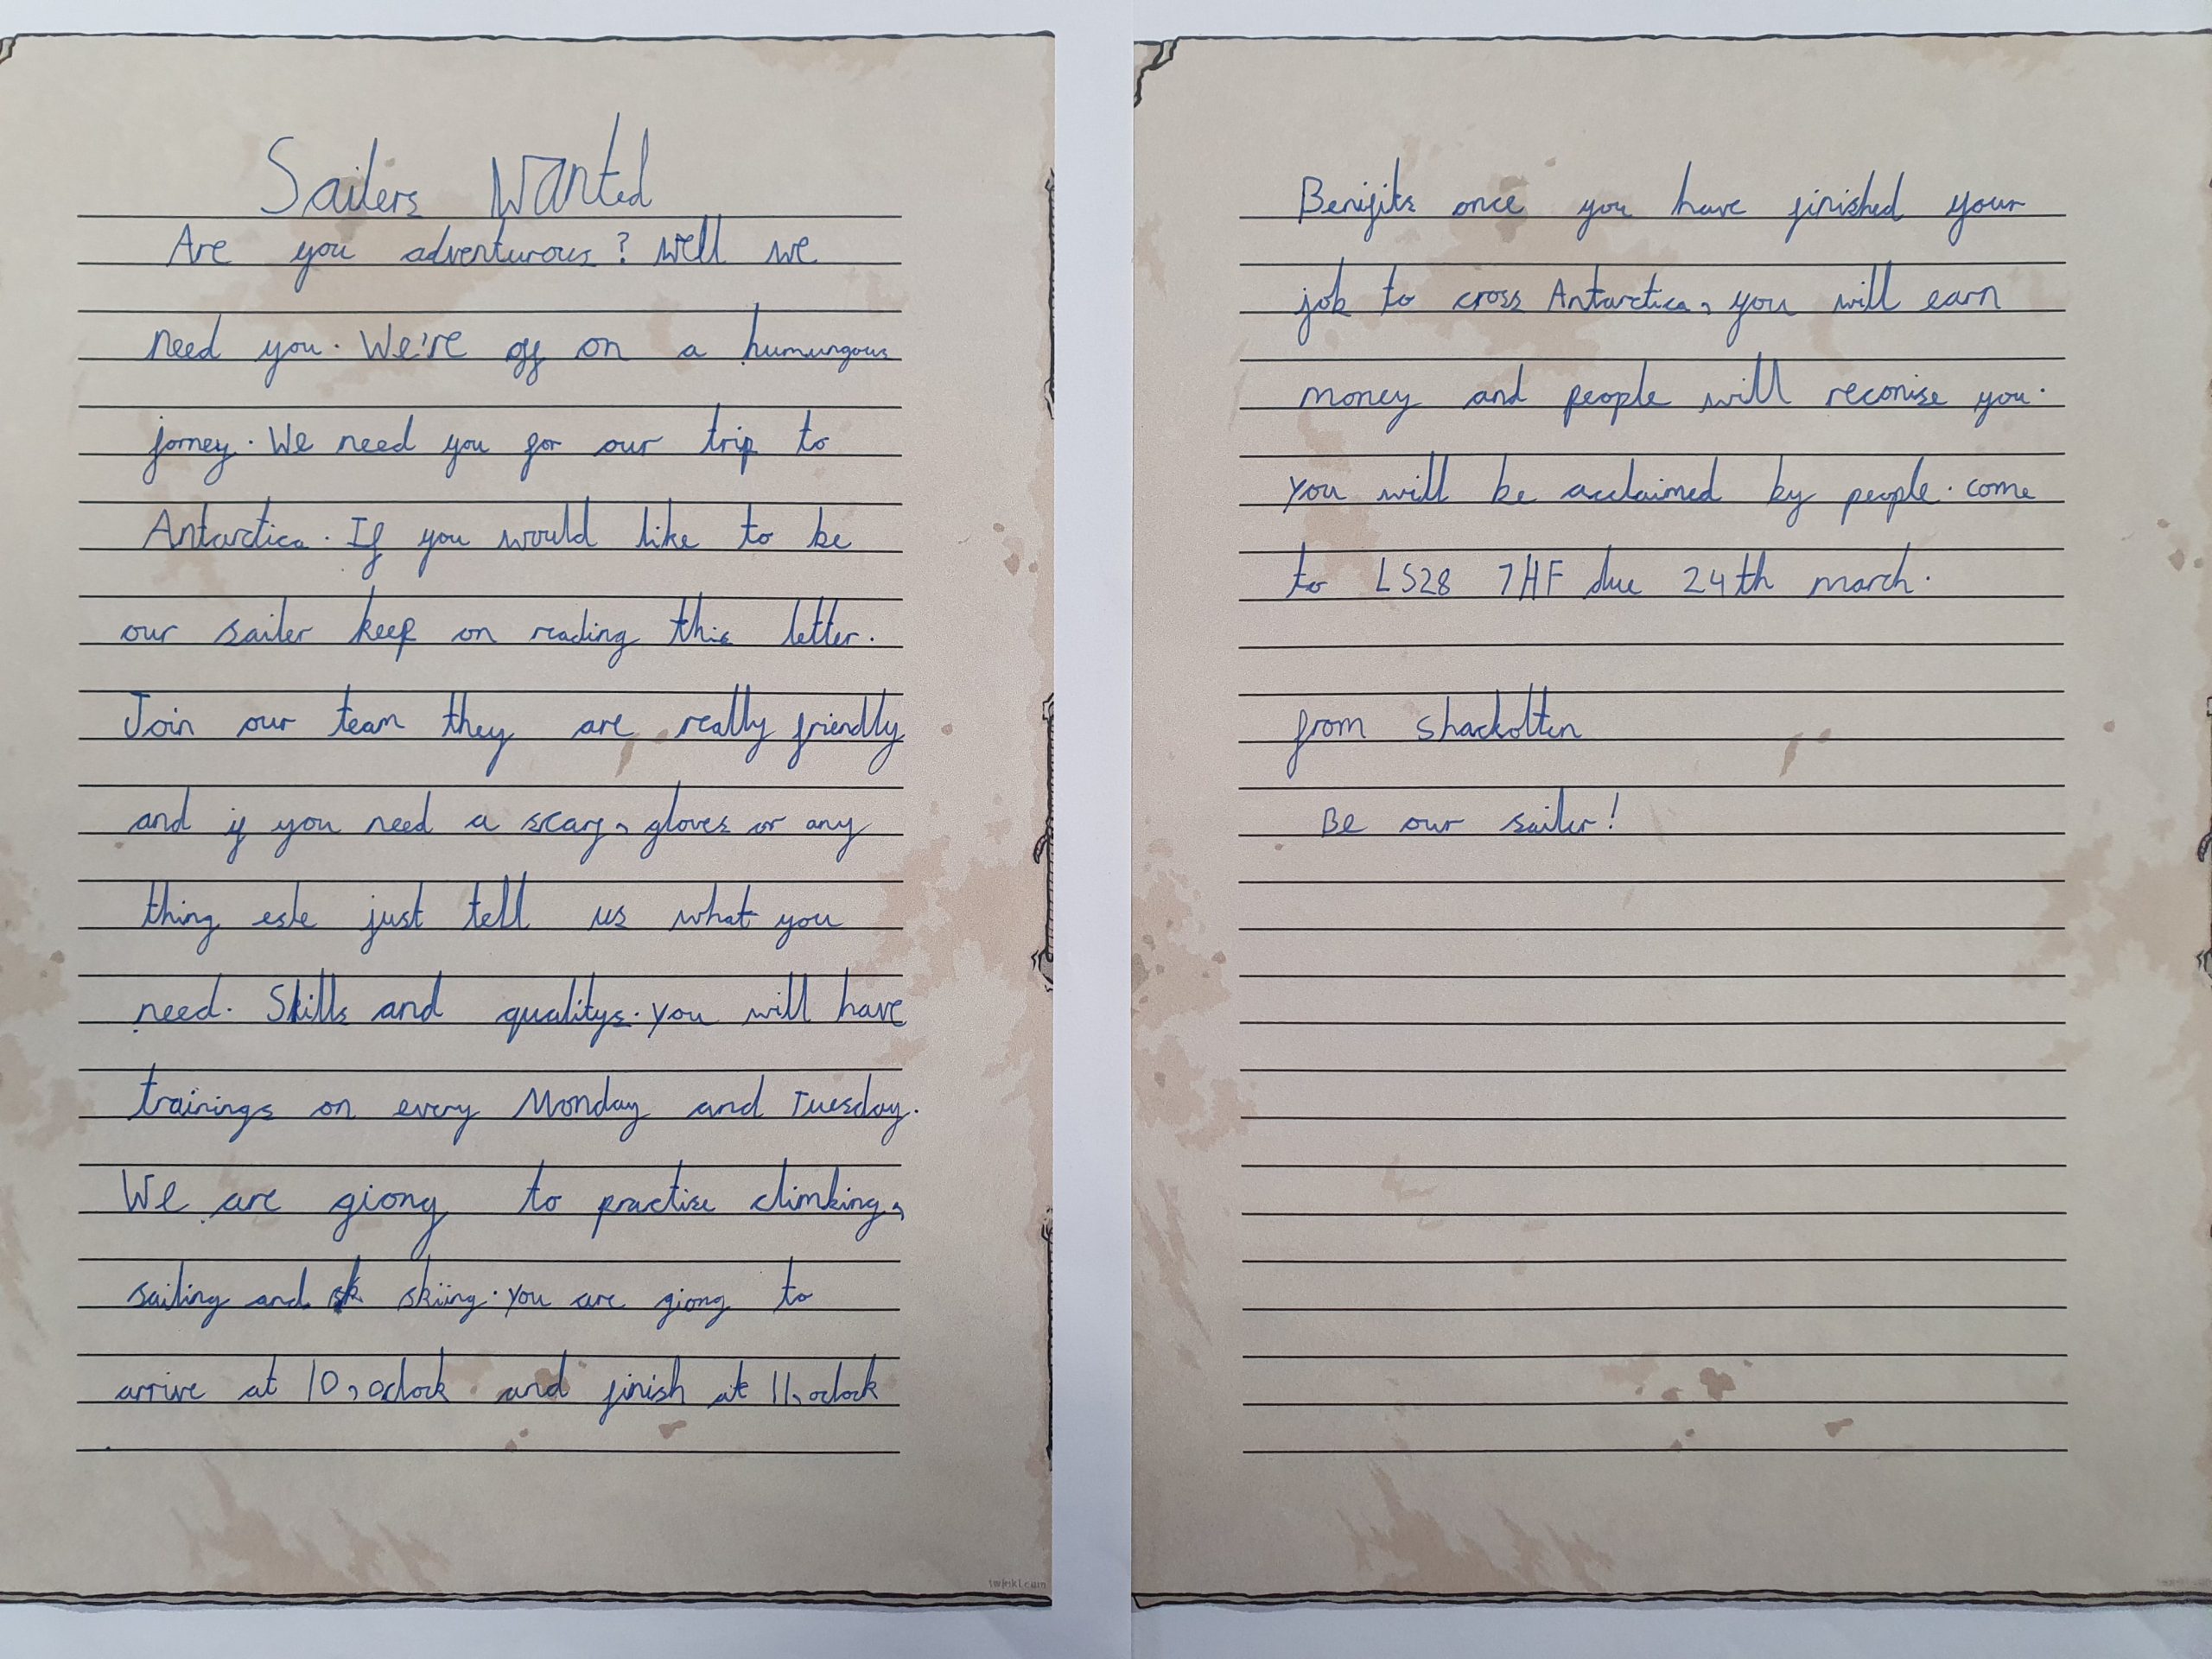 Sailers Wanted
Are you adventurous? Well we
need you. We're off on a humungous
jorney. We need you for our trip to
Antarctica. If you would like to be
our sailer keep on reading this letter.
Join our team they are really friendly
and if you need a scarf, gloves or any
thing esle just tell us what you
need. Skills and qualitys. you will have
trainings on every Monday and Tuesday.
We are giong to practise climbing,
sailing and sk skiing. you are giong to
arrive at 10,oclock and finish at 11,oclock
.
twinkl.com
Benifits once you have finished your
job to cross Antarctica, you will earn
money and people will reconise you.
you will be acclaimed by people. come
to LS28 7HF due 24th march.
from shackolten
Be our sailer!